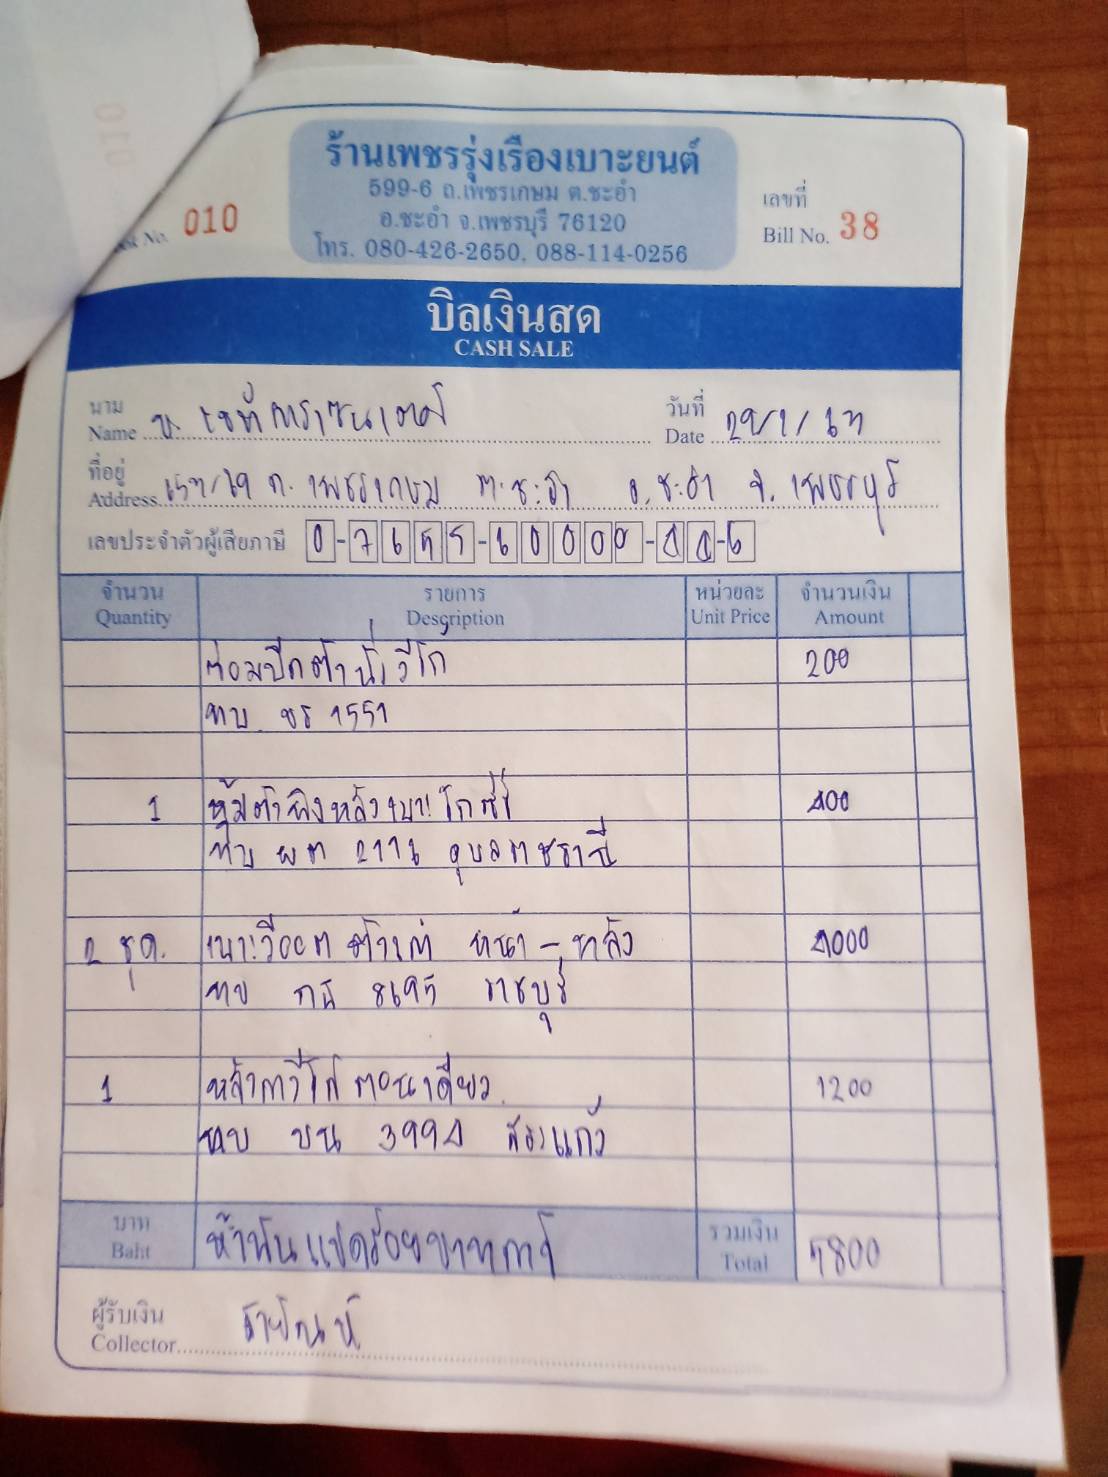 ร้านเพชรรุ่งเรืองเบาะยนต์
599-6 ถ.เพชรเกษม ต.ชะอำ
อ.ชะอำ จ.เพชรบุรี 76120
โทร. 080-426-2650, 088-114-0256
No. 010
เลขที่
Bill No. 38
บิลเงินสด
CASH SALE
นาม
Name
วันที่
Date 29/1/67
ที่อยู่
Address ถ. เพชรเกษม ต.ชะอำ อ.ชะอำ จ.เพชรบุรี
เลขประจำตัวผู้เสียภาษี 0-7655-60000-
จำนวน รายการ หน่วยละ จำนวนเงิน
Quantity Description Unit Price Amount
ซ่อมปีก วีโก้ 200
ทบ. 1551
1 หุ้ม พิงหลังเบาะ 400
ทบ ผต อุบลราชธานี
2 ชุด. เบาะวีออส หน้า - หลัง 4000
ทบ 8695 ราชบุรี
1 วีโก้ ตอนเดียว 1200
ทบ บน 3994 สระแก้ว
บาท
Baht ห้าพันแปดร้อยบาท
รวมเงิน
Total 5800
ผู้รับเงิน
Collector